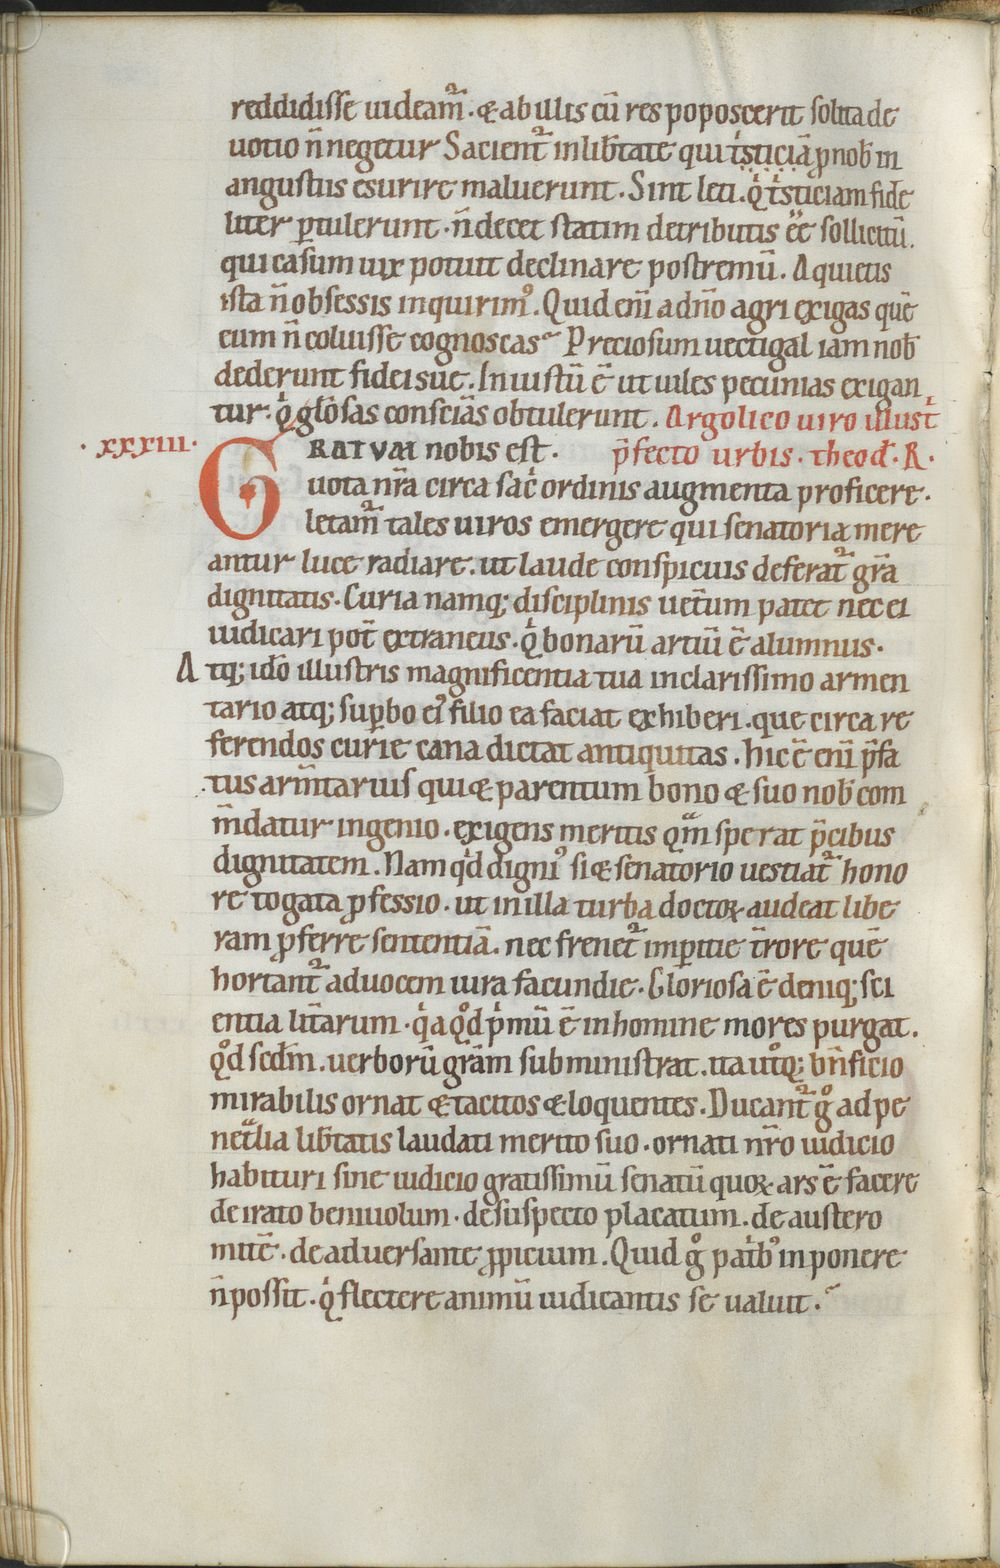 reddidisse uideam̄. & ab illis cū res poposcerit solita de
uotio n̄ negetur Sacient᷑ in lib̄tate qui tͥsticiā ꝓ nob̄ in
angustiis esurire maluerunt. Sint leti. qͥ tͥsticiam fide
liter ꝑtulerunt. n̄ decet statim de tributis eē sollicitū.
qui casum uix potuit declinare postremū. A quietis
ista n̄ obsessis inquirimꝰ. Quid eni͞ a dn̄o agri exigas quē
eum n̄ coluisse cognoscas Preciosum uectigal iam nob̄
dederunt fidei suę. Iniustū ē ut uiles pecunias exigan
tur. qͥ glo͞sas consciās obtulerunt. Argolico uiro illust̄
.xxxiii. GRATVM nobis est. p̄fecto urbis. theod̄. R.
uota nr̄a circa sac̄ ordinis augmenta proficere.
letam᷑ tales uiros emergere qui senatoria mere
antur luce radiare. ut laude conspicuis deferat᷑ gr̄a
dignitatis. Curia namq; disciplinis uet̄um patet nec ei
iudicari pot̄ extraneus. qͥ bonarū artiū ē alumnus.
Atq; idō illustris magnificentia tua inclarissimo armen
tario atq; suꝑbo eiꝰ filio ea faciat exhiberi. que circa re
ferendos curię cana dictat antiquitas. hic ē eni͞ p̄fa
tus arm̄tarius qui & parentum bono & suo nob̄ com
m̄datur ingenio. exigens meritis qͣm sperat p̄cibus
dignitatem. Nam qͥd digniꝰ si & senatorio uestiat᷑ hono
re togata ꝓfessio. ut in illa turba doctoꝝ audeat libe
ram ꝓferre sententiā. nec frenet᷑ imꝑitię t̄rore quē
hortant᷑ ad uocem iura facundię. Gloriosa ē deniq; sci
entia lit̄arum. qͥa qͦd pͥmū ē in homine mores purgat.
qͦd sed̄m. uerborū gr̄am subministrat. ita utͦq; bn̄ficio
mirabilis ornat & tacitos & loquentes. Ducant᷑ gͦ ad pe
netͣlia lib̄tatis laudati merito suo. ornati nr̄o iudicio
habituri sine iudicio gratissimū senatū quoꝝ ars ē facere
de irato beniuolum. de suspecto placatum. de austero
mitē. de aduersante ꝓpicium. Quid gͦ patͥbꝰ inponere
n̄ possit. qͥ flectere animū iudicantis se ualuit.